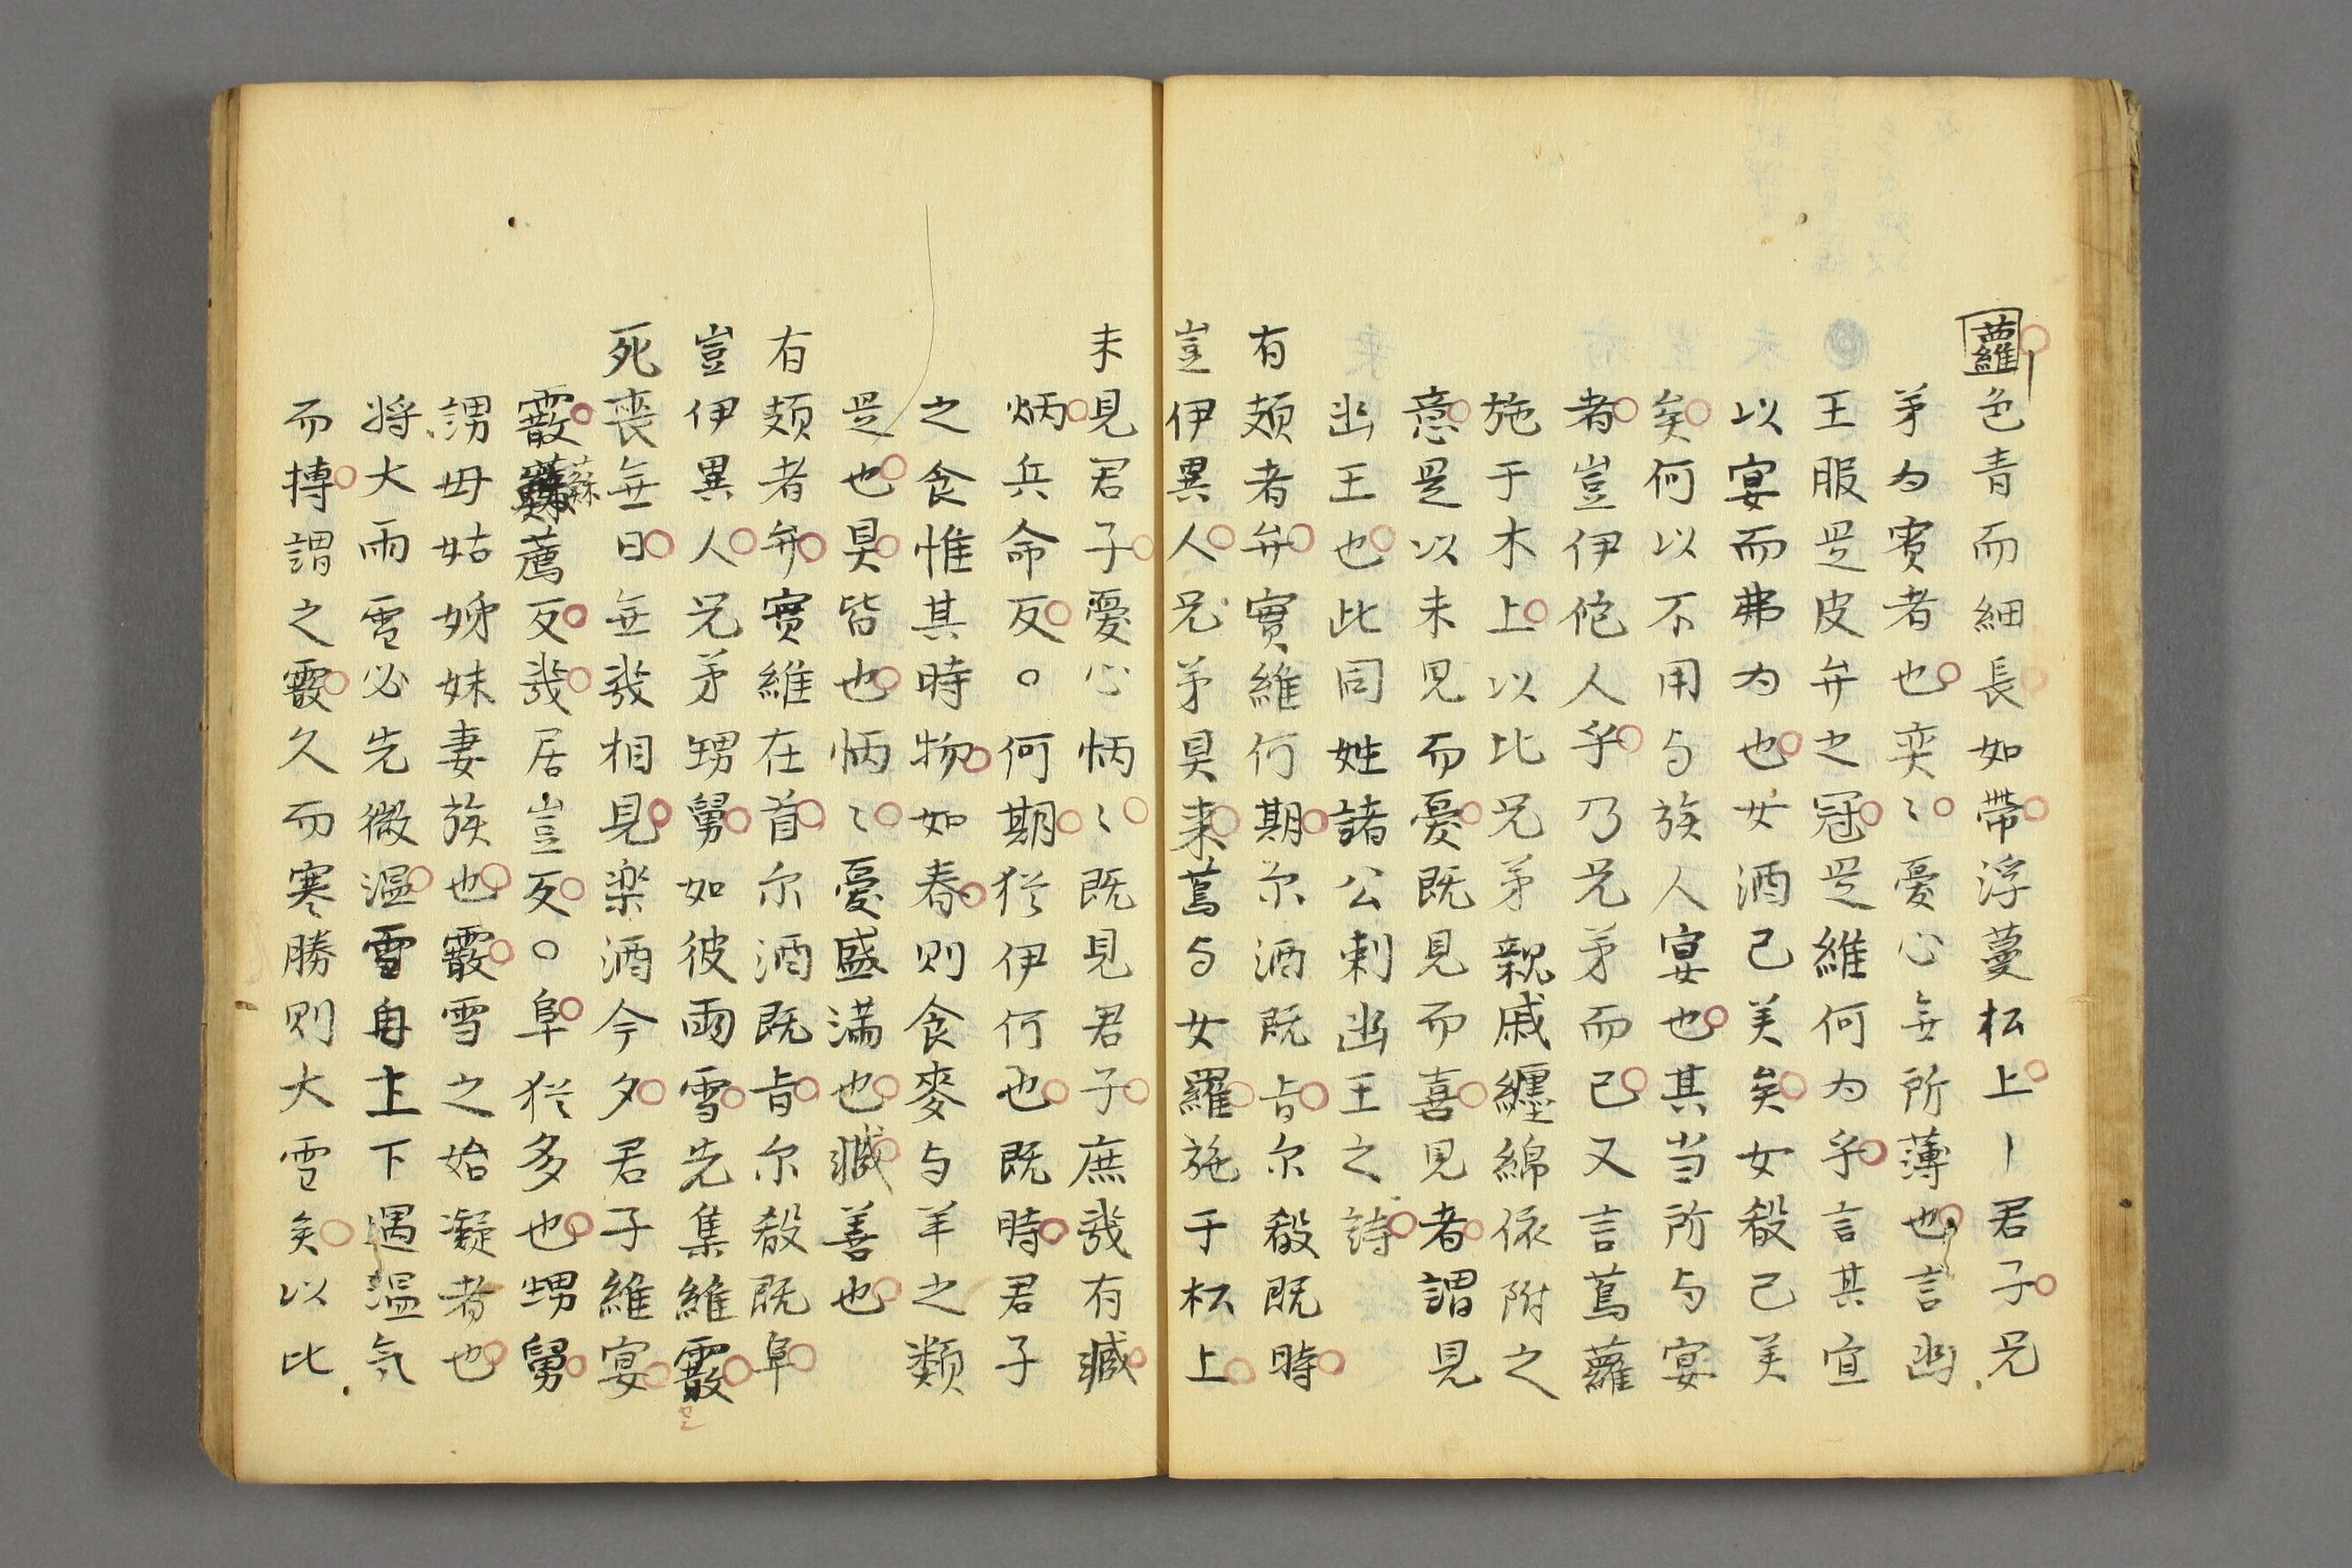 蘿色青而細長如帶浮蔓松上丨君子兄
弟為賓者也奕〻憂心無所薄也言幽
王服是皮弁之冠是維何為乎言其宜
以宴而弗為也女酒已美矣女殽已美
矣何以不用与族人宴也其当所与宴
者豈伊佗人乎乃兄弟而已又言蔦蘿
施于木上以比兄弟親戚纏綿依附之
意是以未見而憂既見而喜見者謂見
幽王也此同姓諸公刺幽王之詩
有頍者弁實維何期尔酒既㫖尔殽既時
豈伊異人兄弟具来蔦与女羅施于松上
未見君子憂心怲〻既見君子庶㦲有臧
怲兵命反○何期猶伊何也既時君子
之食惟其時物如春則食麥与羊之類
是也具皆也怲〻憂盛満也臧善也
有頍者弁實維在首尔酒既㫖尔殽既阜
豈伊異人兄弟甥舅如彼雨雪先集維霰
死喪無日無㦲相見楽酒今夕君子維宴
霰蘇薦反㦲居豈反○阜猶多也甥舅
謂母姑姊妹妻族也霰雪之始凝者也
将大雨雪必先微温雪自上下遇温気
而摶謂之霰久而寒勝則大雪矣以比